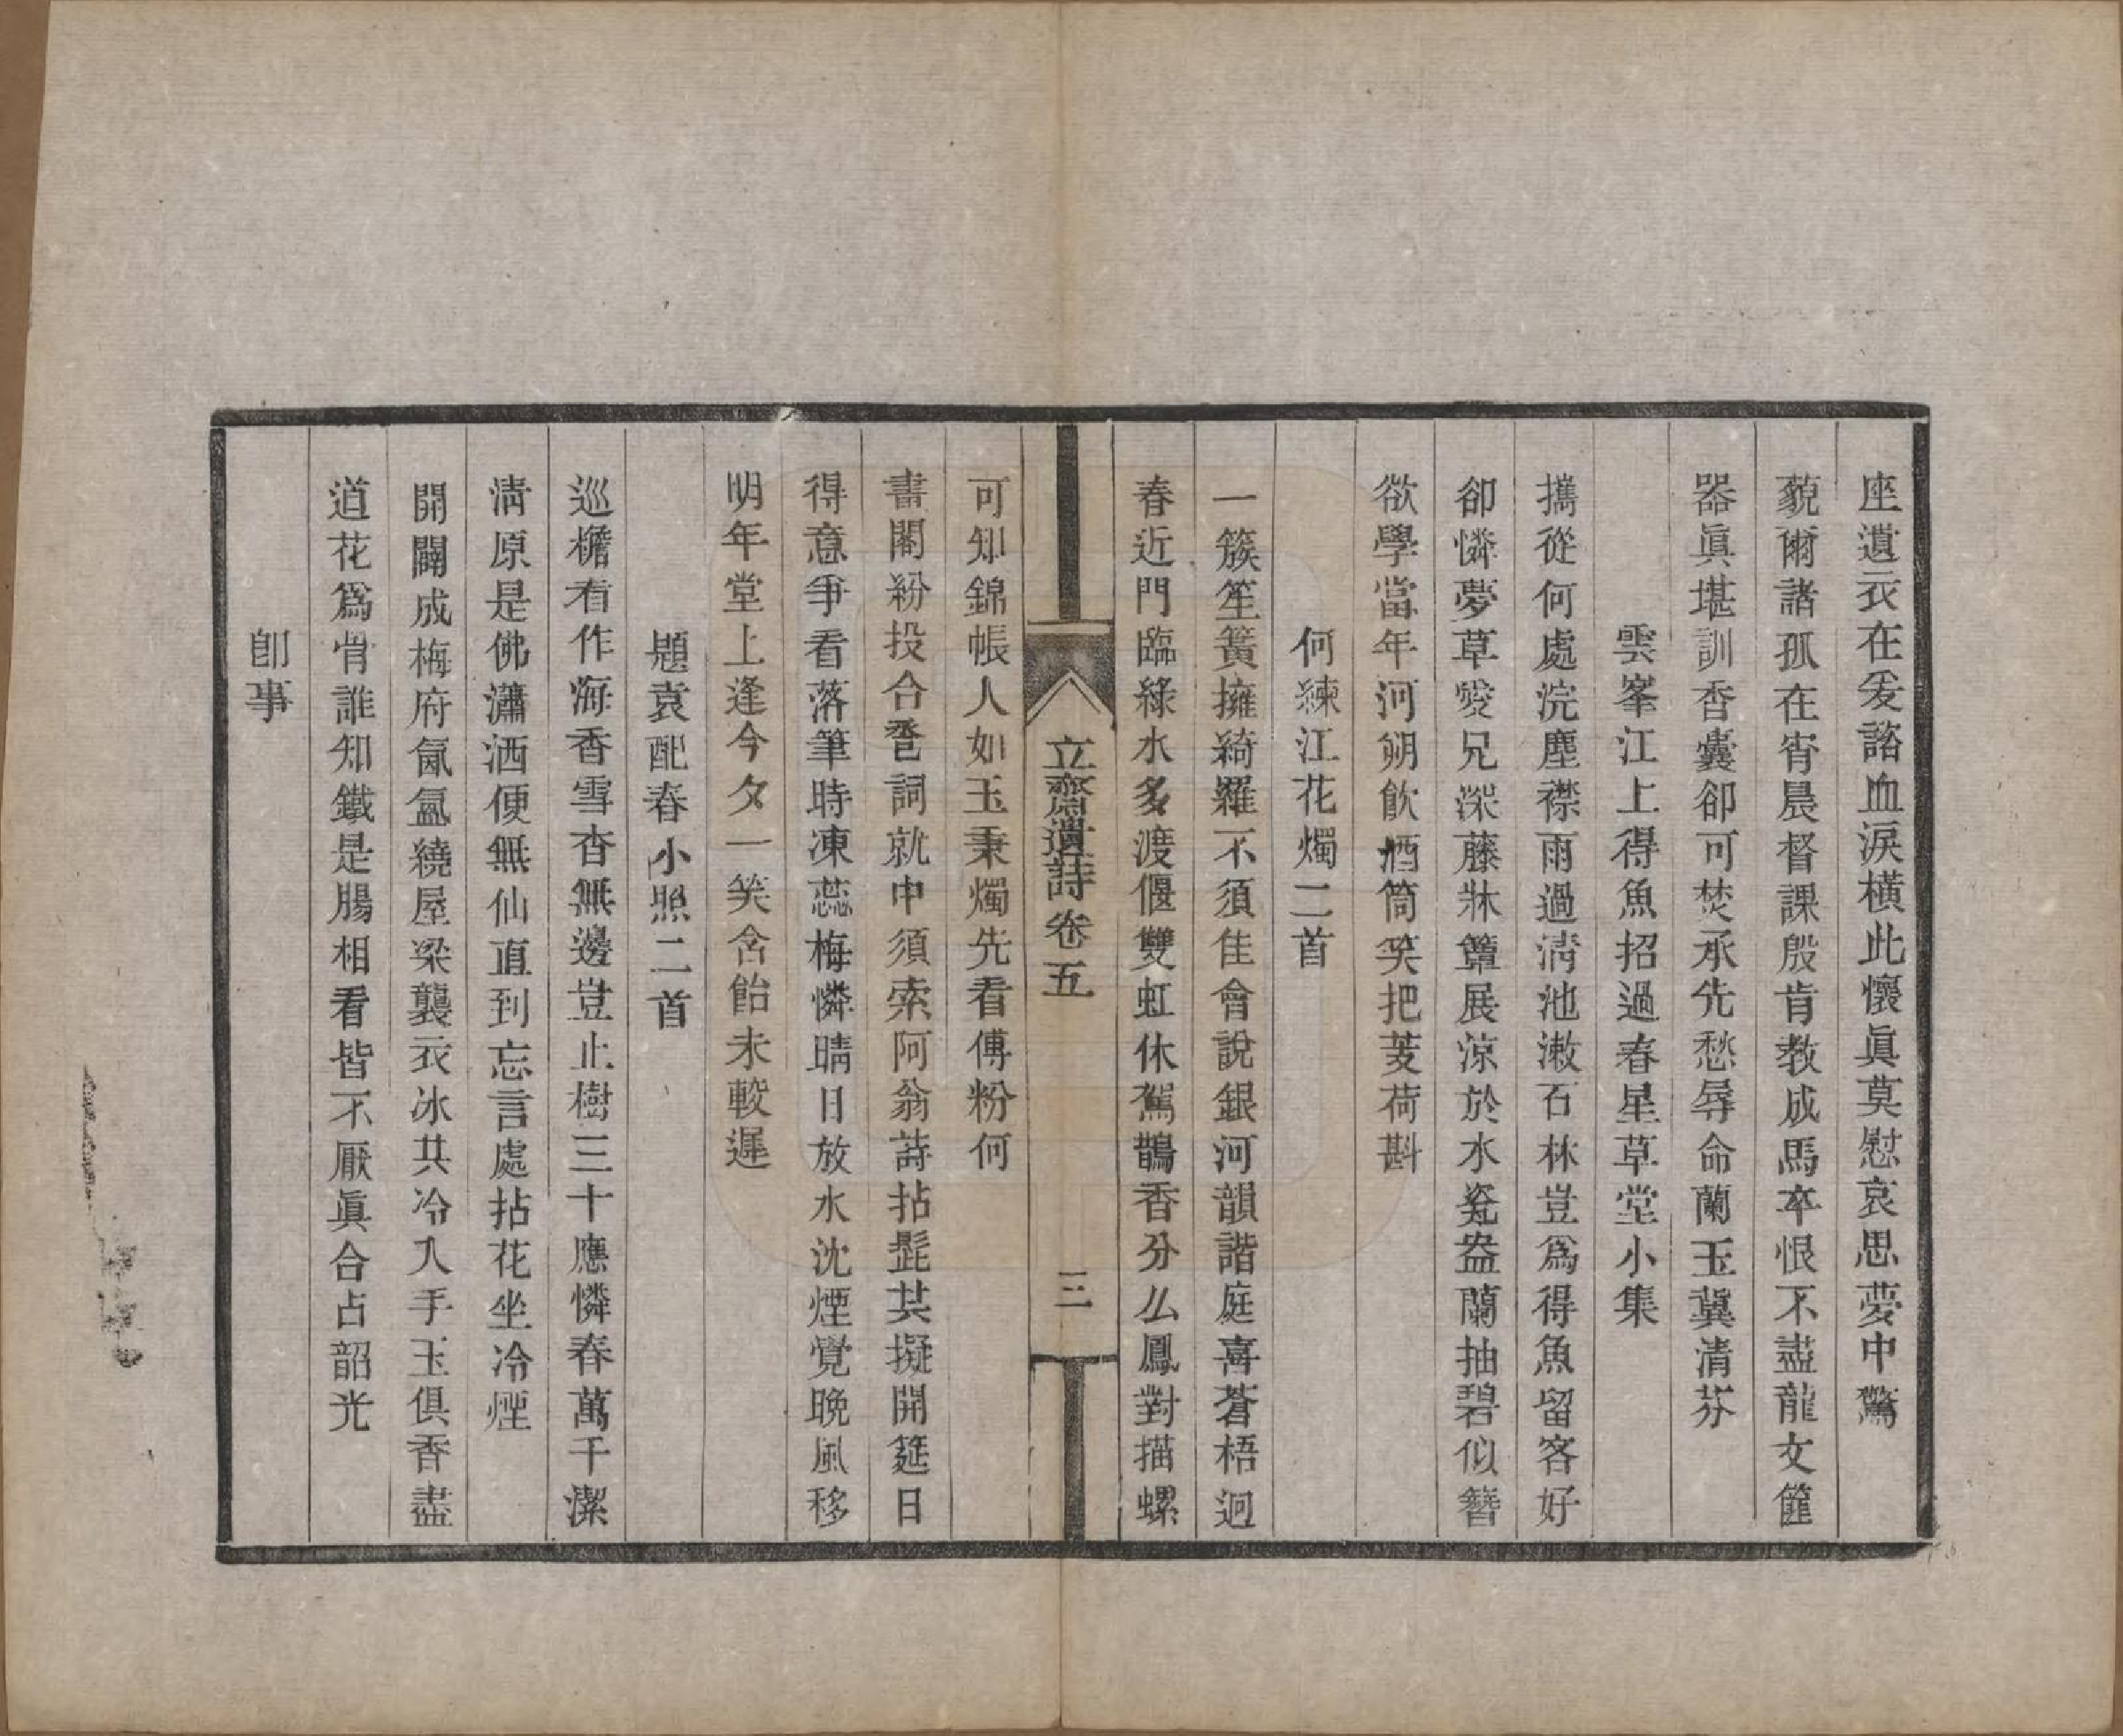 座遺衣在爰諮血淚橫此懷眞莫慰哀思夢中驚
藐爾諸孤在宵晨督課殷肯教成馬卒恨不盡龍文篚
器眞堪訓香囊卻可焚承先愁辱命蘭玉冀清芬
雲峯江上得魚招過春星草堂小集
攜從何處浣塵襟雨過淸池漱石林豈爲得魚留客好
卻憐夢草愛兄深藤牀簟展涼於水甆盎蘭抽碧似簪
欲學當年河朔飮酒筒笑把芰荷斟
何練江花燭二首
一簇笙簧擁綺羅不須佳會說銀河韻諧庭喜蒼梧迥
春近門臨綠水多渡偃雙虹休駕鵲香分么鳳對描螺
立齋遺詩卷五
三
可知錦帳人如玉秉燭先看傅粉何
畫閣紛投合巹詞就中須索阿翁詩拈髭共擬開筵日
得意爭看落筆時凍蕊梅憐晴日放水沈煙覺晚風移
明年堂上逢今夕一笑含飴未較遲
題袁配春小照二首
巡檐看作海香雪杳無邊豈止樹三十應憐春萬千潔
淸原是佛瀟洒便無仙直到忘言處拈花坐冷煙
開闢成梅府氤氳繞屋梁襲衣冰共冷入手玉俱香盡
道花爲骨誰知鐵是腸相看皆不厭眞合占韶光
卽事